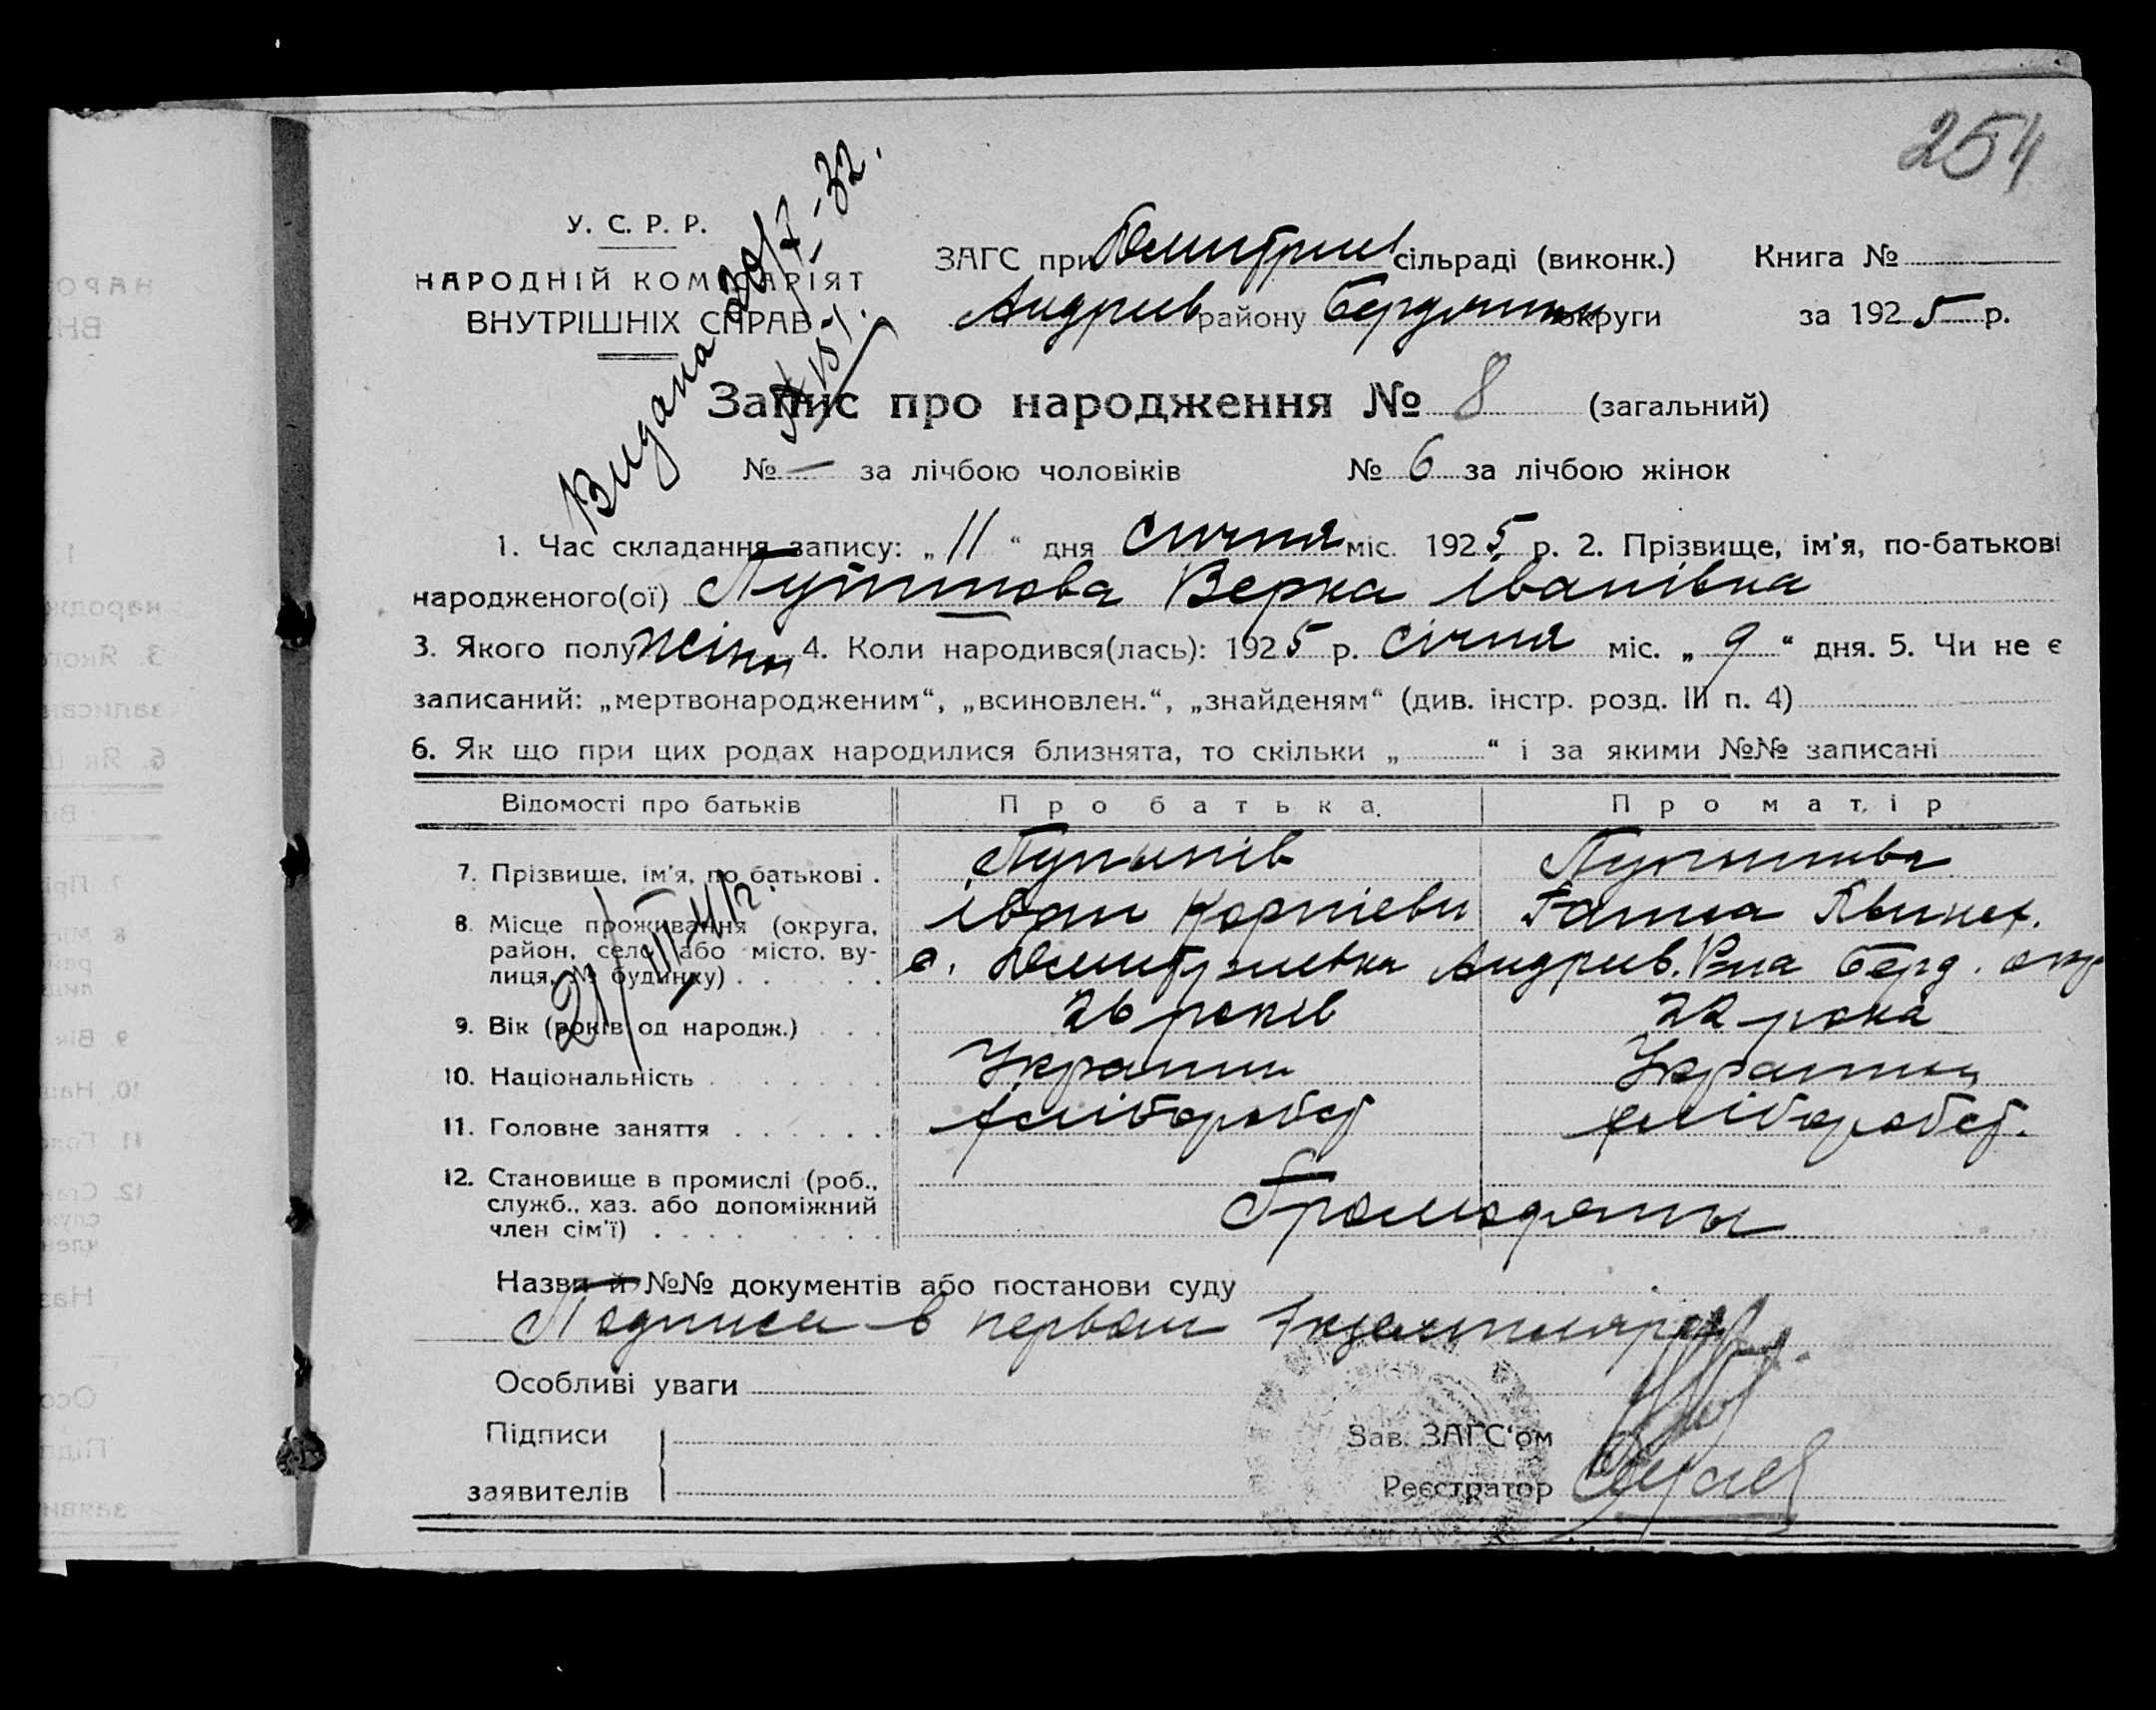 254
У. С. Р. Р.
НАРОДНІЙ КОМІСАРІЯТ
ВНУТРІШНІХ СПРАВ
Видана 20/7-32.
ЗАГС при Дмитриев сільраді (виконк.) Книга №
Андриев району Бердянськ округи за 1925 р.
Запис про народження № 8 (загальний)
№ — за лічбою чоловіків № 6 за лічбою жінок
1. Час складання запису: „11“ дня січня міс. 1925 р. 2. Прізвище, ім'я, по-батькові
народженого(ої) Верка Іванівна
3. Якого полу жіноч 4. Коли народився(лась): 1925 р. січня міс. „9“ дня. 5. Чи не є
записаний: „мертвонародженим“, „всиновлен.“, „знайденям“ (див. інстр. розд. III п. 4)
6. Як що при цих родах народилися близнята, то скільки „ “ і за якими №№ записані
Відомості про батьків Про батька. Про матір
7. Прізвище, ім'я, по батькові .
Іван Корпієви Ганна
8. Місце проживання (округа,
район, село або місто, ву-
лиця, № будинку)
с. Дмитриевка Андриев. Рна Берд. окр
9. Вік (років од народж.) 26 років 22 рока
10. Національність Украинц Украинц
11. Головне заняття хлібороб хлібороб.
12. Становище в промислі (роб.,
служб., хаз. або допоміжний
член сім'ї)
Громодяны
Назви й №№ документів або постанови суду
Подписи в первом экземпляре
Особливі уваги
Підписи
заявителів
Зав. ЗАГС'ом
Реєстратор